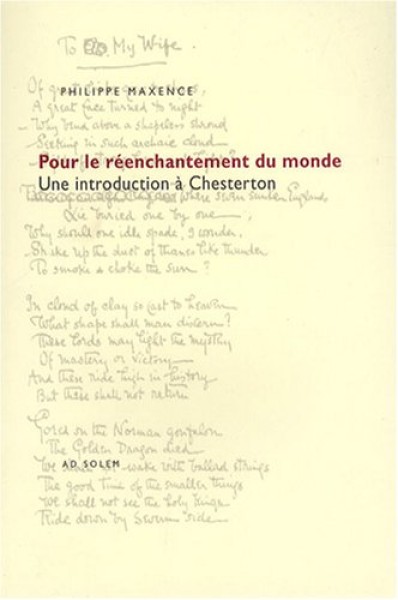 To My Wife.
Of great
PHILIPPE MAXENCE
A great face turned to night
Why bend above a shapeless shroud
Seeking in such archaic cloud
Pour le réenchantement du monde
Une introduction à Chesterton
where seven sunken Englands
Lie buried one by one
Why should one idle spade, I wonder,
Shake up the dust of thanes like thunder
To smoke & choke the sun?
In cloud of clay so cast to heaven
What shape shall man discern?
These lords may light the mystery
Of mastery or victory
And these ride high in history
But these shall not return
Gored on the Norman gonfalon
The Golden Dragon died
AD SOLEM
We wake with ballad strings
The good time of the smaller things
We shall not see the holy kings
Ride down by Severn side